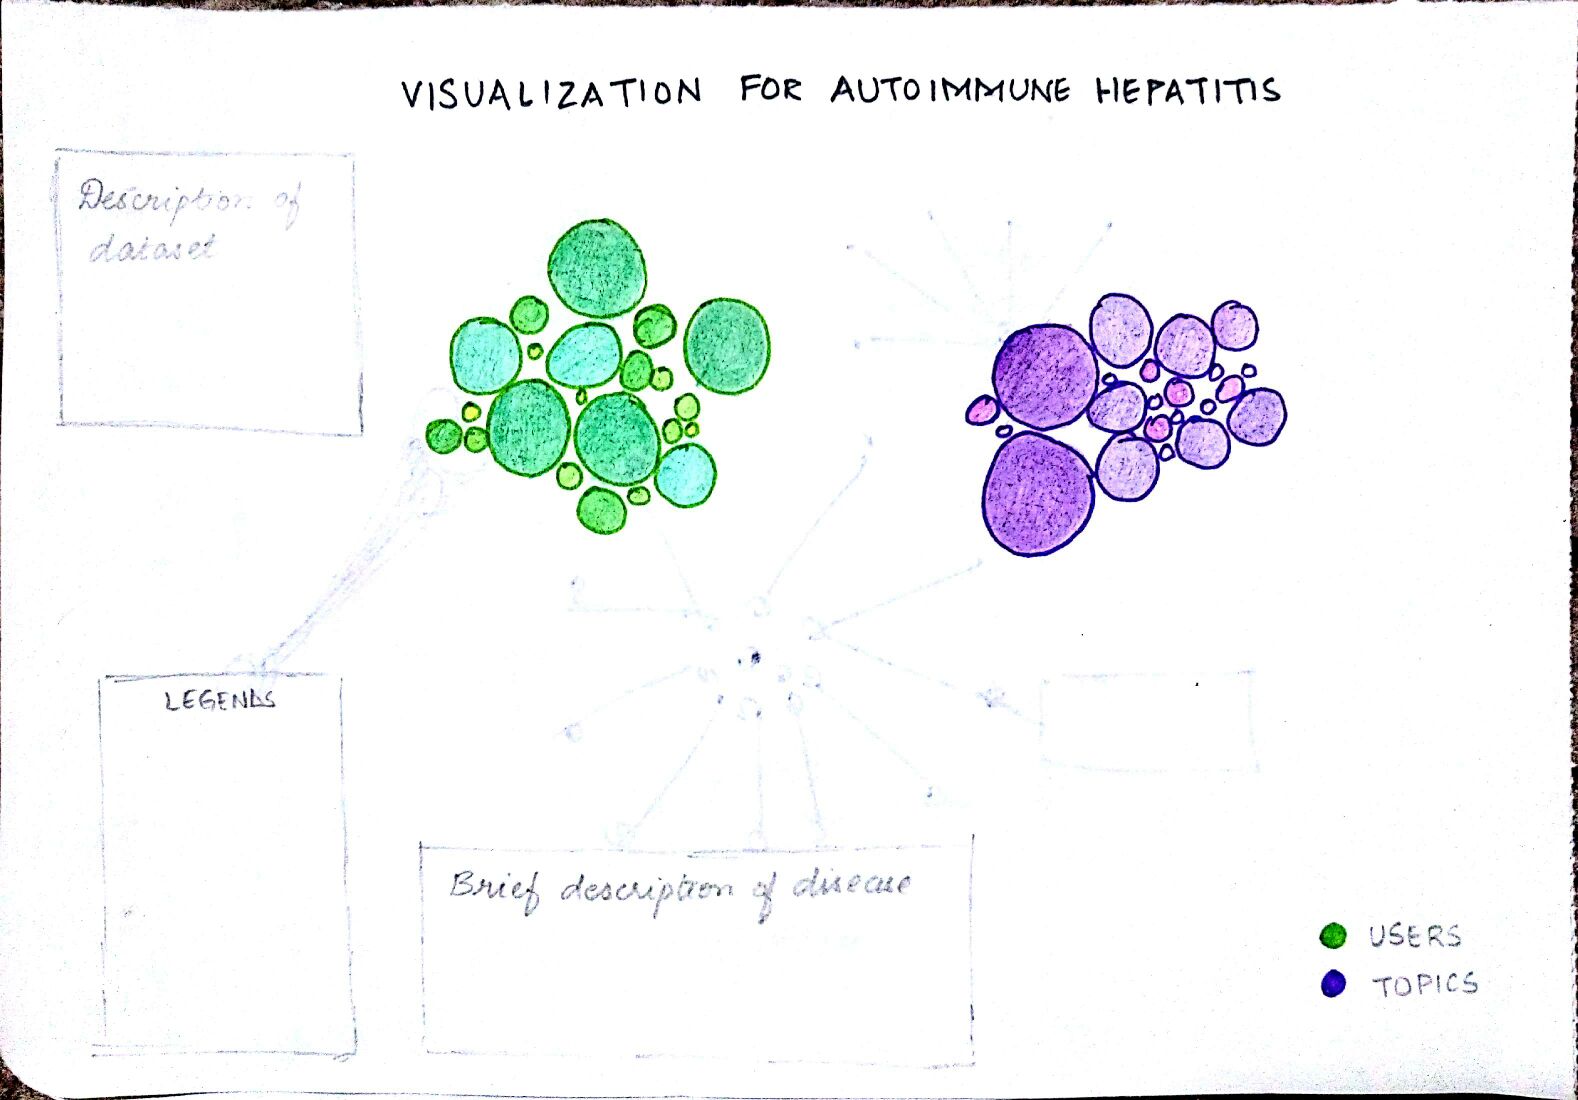 VISUALIZATION FOR AUTOIMMUNE HEPATITIS
Description of
dataset
LEGENDS
Brief description of disease
USERS
TOPICS